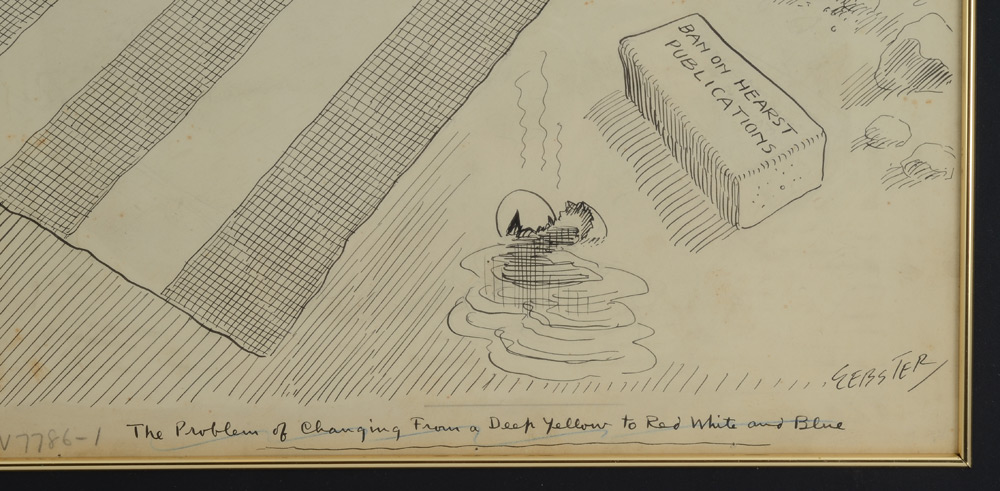 BAN ON HEARST
PUBLICATIONS
WEBSTER
V7786-1
The Problem of Changing From a Deep Yellow to Red White and Blue